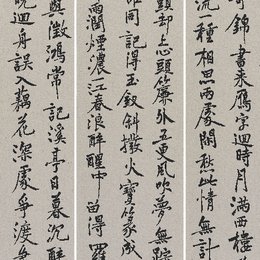 錦書来雁字迴時月滿西樓
流一種相思兩處閒愁此情無計
頭却上心頭簾外五更風吹夢無
同記得玉釵斜撥火寶篆成
雨潤煙濃一江春浪醉醒中留得羅
與徵鴻常記溪亭日暮沉醉
晚迴舟誤入藕花深處爭渡